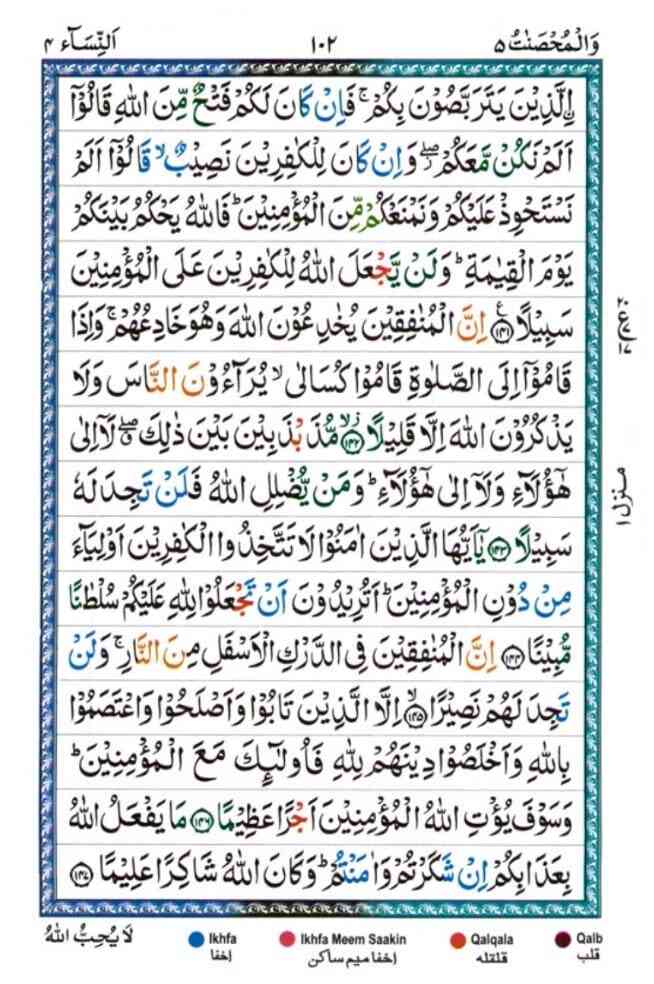 وَالْمُحْصَنٰتُ ۵ ۱۰۲ اَلنِّسَآء ۴
اِۨلَّذِيْنَ يَتَرَبَّصُوْنَ بِكُمْ ۚ فَاِنْ كَانَ لَكُمْ فَتْحٌ مِّنَ اللّٰهِ قَالُوْۤا
اَلَمْ نَكُنْ مَّعَكُمْ ۖ وَاِنْ كَانَ لِلْكٰفِرِيْنَ نَصِيْبٌ ۙ قَالُوْۤا اَلَمْ
نَسْتَحْوِذْ عَلَيْكُمْ وَنَمْنَعْكُمْ مِّنَ الْمُؤْمِنِيْنَ ؕ فَاللّٰهُ يَحْكُمُ بَيْنَكُمْ
يَوْمَ الْقِيٰمَةِ ؕ وَلَنْ يَّجْعَلَ اللّٰهُ لِلْكٰفِرِيْنَ عَلَى الْمُؤْمِنِيْنَ
سَبِيْلًا ۱۴۱ اِنَّ الْمُنٰفِقِيْنَ يُخٰدِعُوْنَ اللّٰهَ وَهُوَ خَادِعُهُمْ ۚ وَاِذَا
قَامُوْۤا اِلَى الصَّلٰوةِ قَامُوْا كُسَالٰى ۙ يُرَآءُوْنَ النَّاسَ وَلَا
يَذْكُرُوْنَ اللّٰهَ اِلَّا قَلِيْلًا ۱۴۲ مُّذَبْذَبِيْنَ بَيْنَ ذٰلِكَ ۖ لَاۤ اِلٰى
هٰۤؤُلَآءِ وَلَاۤ اِلٰى هٰۤؤُلَآءِ ؕ وَمَنْ يُّضْلِلِ اللّٰهُ فَلَنْ تَجِدَ لَهٗ
سَبِيْلًا ۱۴۳ يٰۤاَيُّهَا الَّذِيْنَ اٰمَنُوْا لَا تَتَّخِذُوا الْكٰفِرِيْنَ اَوْلِيَآءَ
مِنْ دُوْنِ الْمُؤْمِنِيْنَ ؕ اَتُرِيْدُوْنَ اَنْ تَجْعَلُوْا لِلّٰهِ عَلَيْكُمْ سُلْطٰنًا
مُّبِيْنًا ۱۴۴ اِنَّ الْمُنٰفِقِيْنَ فِى الدَّرْكِ الْاَسْفَلِ مِنَ النَّارِ ۚ وَلَنْ
تَجِدَ لَهُمْ نَصِيْرًا ۙ ۱۴۵ اِلَّا الَّذِيْنَ تَابُوْا وَاَصْلَحُوْا وَاعْتَصَمُوْا
بِاللّٰهِ وَاَخْلَصُوْا دِيْنَهُمْ لِلّٰهِ فَاُولٰٓئِكَ مَعَ الْمُؤْمِنِيْنَ ؕ
وَسَوْفَ يُؤْتِ اللّٰهُ الْمُؤْمِنِيْنَ اَجْرًا عَظِيْمًا ۱۴۶ مَا يَفْعَلُ اللّٰهُ
بِعَذَابِكُمْ اِنْ شَكَرْتُمْ وَاٰمَنْتُمْ ؕ وَكَانَ اللّٰهُ شَاكِرًا عَلِيْمًا ۱۴۷
منزل ۱
لَا يُحِبُّ اللّٰهُ
Ikhfa Ikhfa Meem Saakin Qalqala Qalb
إخفا إخفا ميم ساكن قلقله قلب